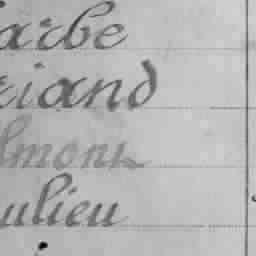 arbe
riand
lmont
ulieu